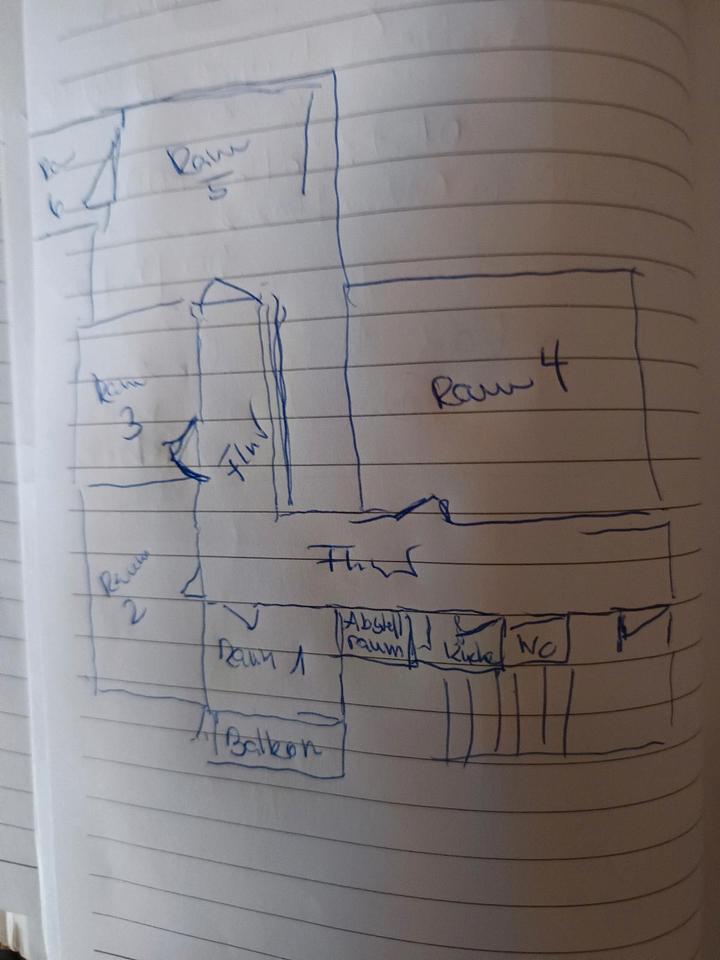 Raum
5
Ra
6
Raum
3
Raum 4
Flur
Flur
Raum
2
Raum 1
Abstell
raum
Küche
WC
Balkon